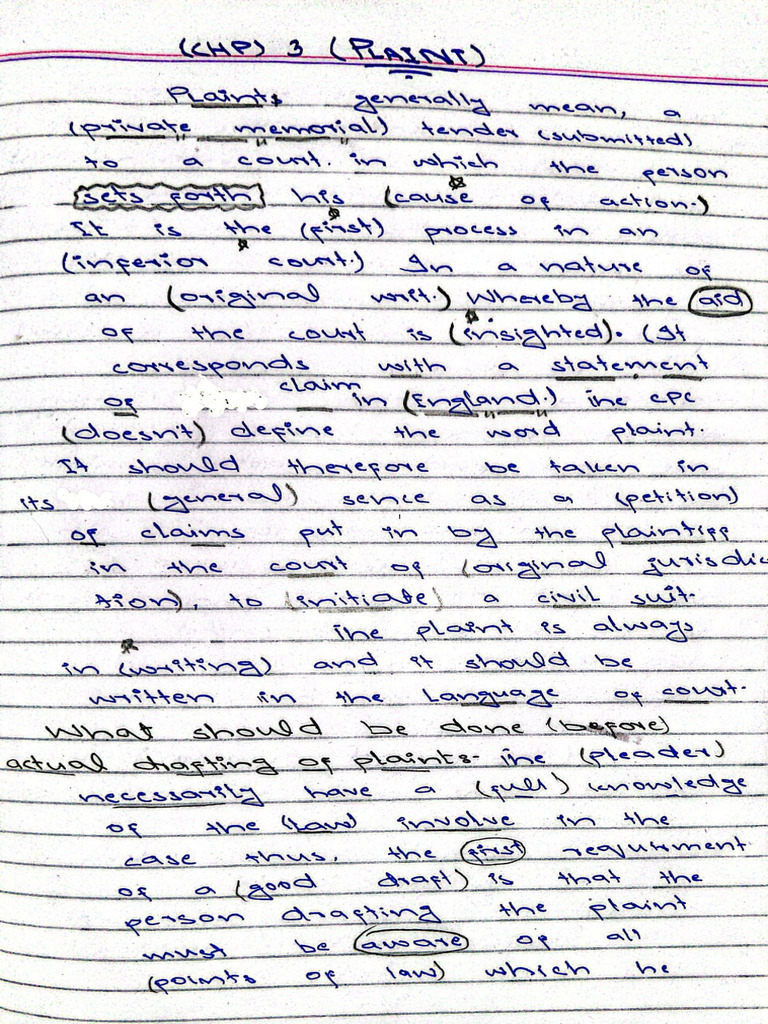 (CHP) 3 (PLAINT)
Plaints generally mean, a
(private memorial) tender (submitted)
to a court. in which the person
sets forth his (cause of action.)
It is the (first) process in an
(inferior court.) In a nature of
an (original writ.) Whereby the aid
of the court is (insighted). (It
corresponds with a statement
of claim in (England.) ine CPC
(doesn't) define the word plaint.
It should therefore be taken in
its (general) sence as a (petition)
of claims put in by the plaintiff
in the court of (original jurisdic
tion), to (initiate) a civil suit.
ine plaint is always
in (writing) and it should be
written in the language of court.
What should be done (before)
actual drafting of plaints- ine (pleader)
necessarily have a (full) knowledge
of the (law) involve in the
case thus, the first requirment
of a (good draft) is that the
person drafting the plaint
must be aware of all
(points of law) which he